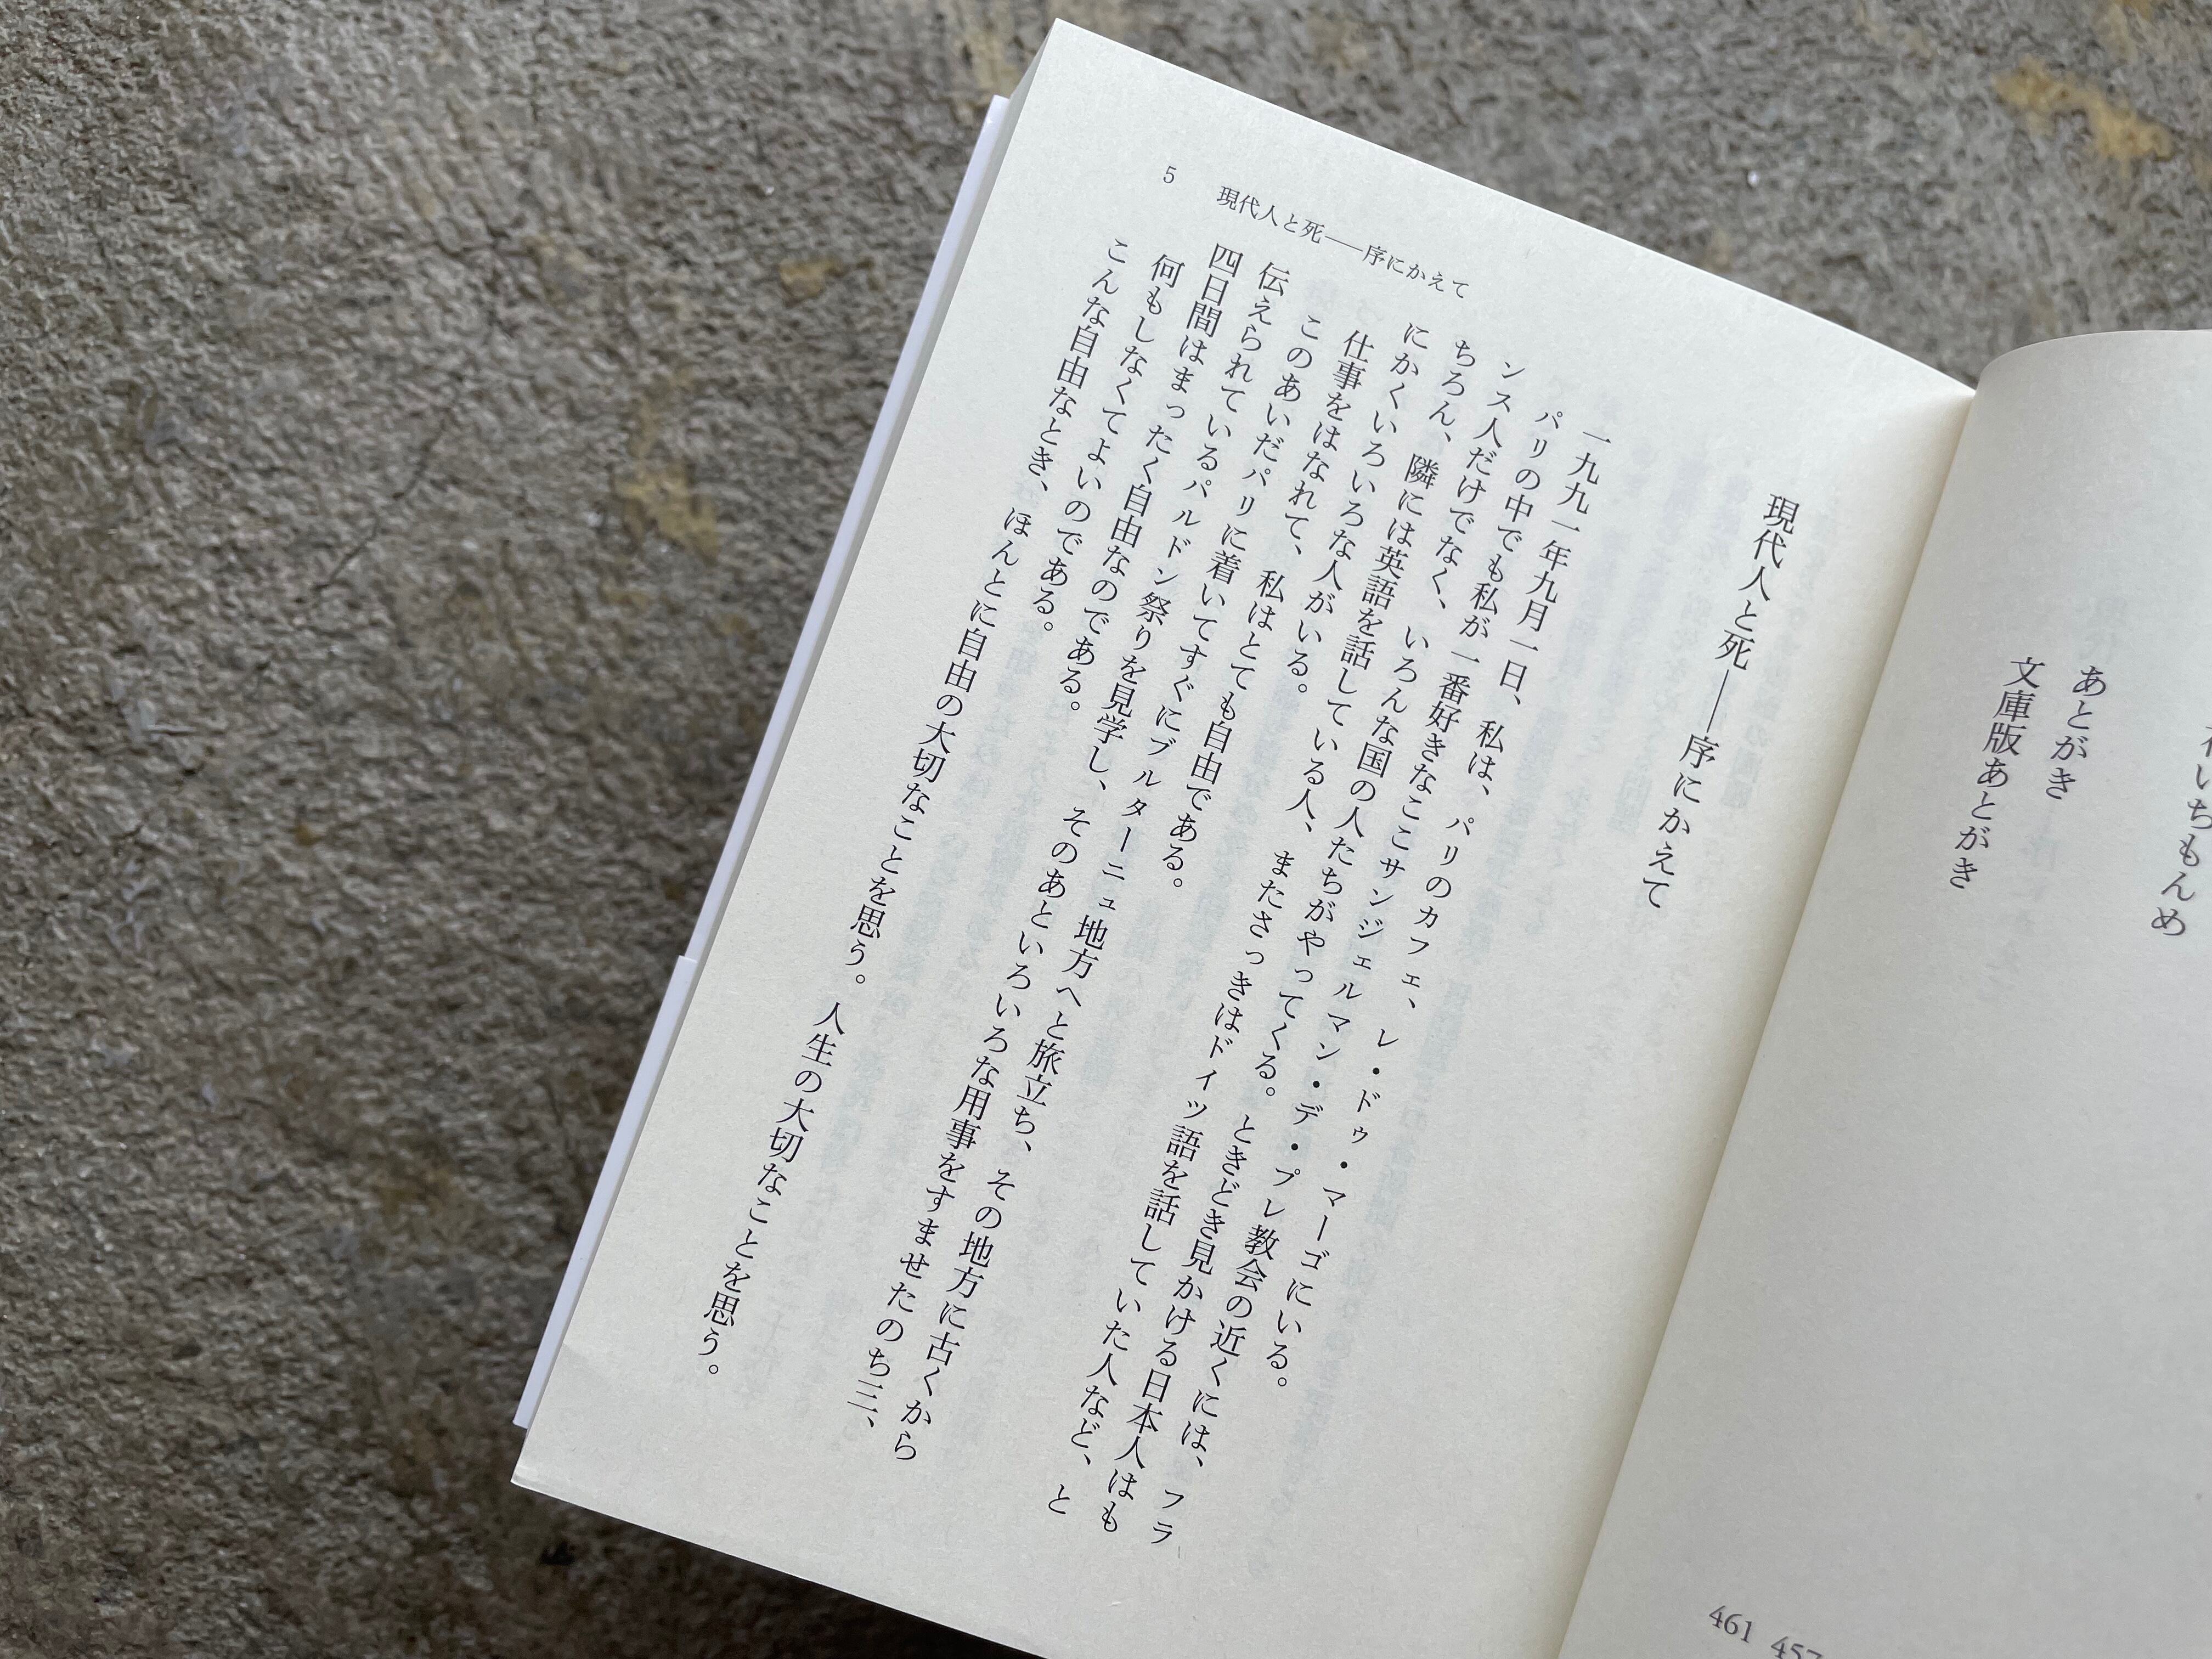 いちもんめ
あとがき
457
文庫版あとがき
461
現代人と死――序にかえて
一九九一年九月一日、私は、パリのカフェ、レ・ドゥ・マーゴにいる。
パリの中でも私が一番好きなここサンジェルマン・デ・プレ教会の近くには、フラ
ンス人だけでなく、いろんな国の人たちがやってくる。ときどき見かける日本人はも
ちろん、隣には英語を話している人、またさっきはドイツ語を話していた人など、と
にかくいろいろな人がいる。
仕事をはなれて、私はとても自由である。
このあいだパリに着いてすぐにブルターニュ地方へと旅立ち、その地方に古くから
伝えられているパルドン祭りを見学し、そのあといろいろな用事をすませたのち三、
四日間はまったく自由なのである。
何もしなくてよいのである。
こんな自由なとき、ほんとに自由の大切なことを思う。人生の大切なことを思う。
5 現代人と死――序にかえて